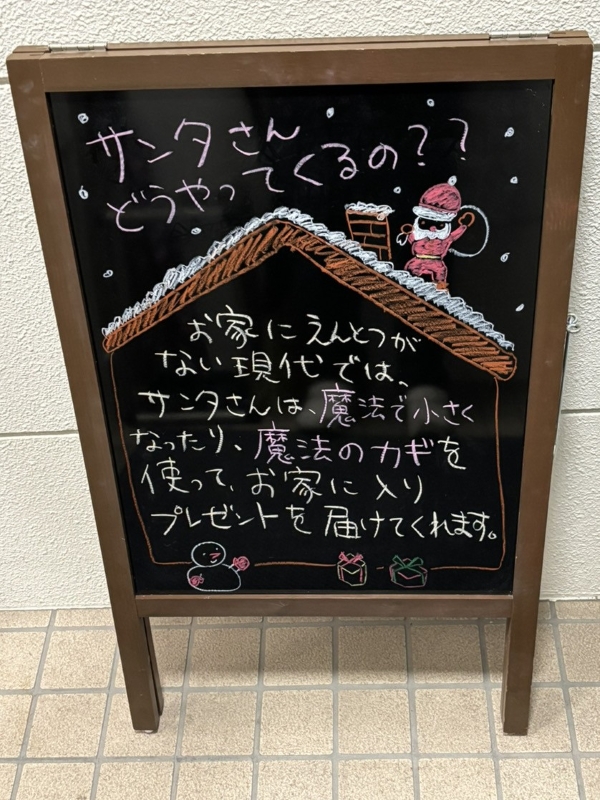 サンタさん
どうやってくるの？？
お家にえんとつが
ない現代では、
サンタさんは、魔法で小さく
なったり、魔法のカギを
使って、お家に入り
プレゼントを届けてくれます。